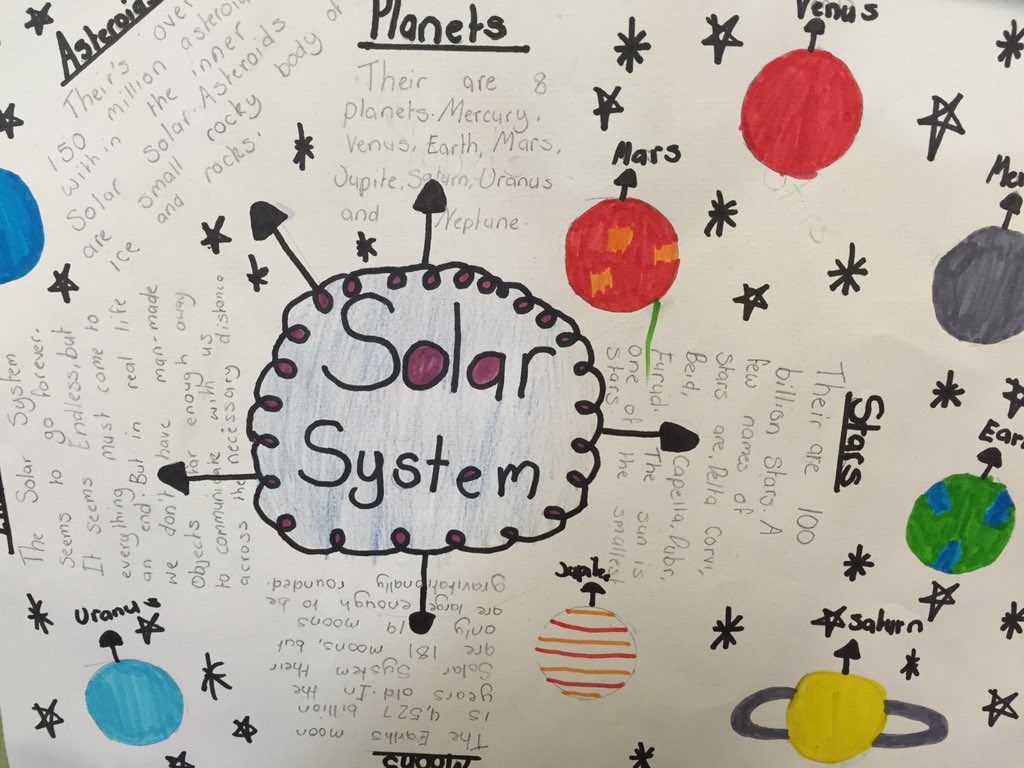 Asteroids
Their's over
150 million asteroid
with in the inner
Solar Solar. Asteroids
are small rocky body of
ice and rocks.
Planets
Their are 8
planets. Mercury,
Venus, Earth, Mars,
Jupite, Saturn, Uranus
and Neptune.
Venus
Mars
Mer
Ear
Solar
System
Stars
Their are 100
billion Stars. A
few names of
Stars are, Pelta Corvi,
Capella, Pubr,
Beid,
Furud. The sun is
one of the smallest
Stars
The Solar System
Seems to go forever.
It seems Endless, but
everything must come to
an end. But in real life
we don't have man-made
Objects far enough away
to communicate with us
across the necessary distance
Uranus
Jupite
Saturn
Moons
The Earths moon
is 4,527 billion
years old. In the
Solar System their
are 181 moons, but
only 19 moons
are large enough to be
gravitationally rounded.